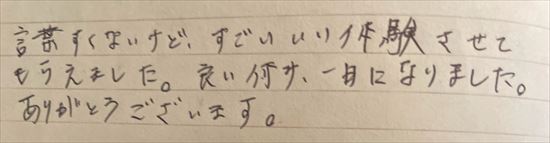 言葉すくないけど、すごいいい体験させて
もらえました。良い何か、一日になりました。
ありがとうございます。